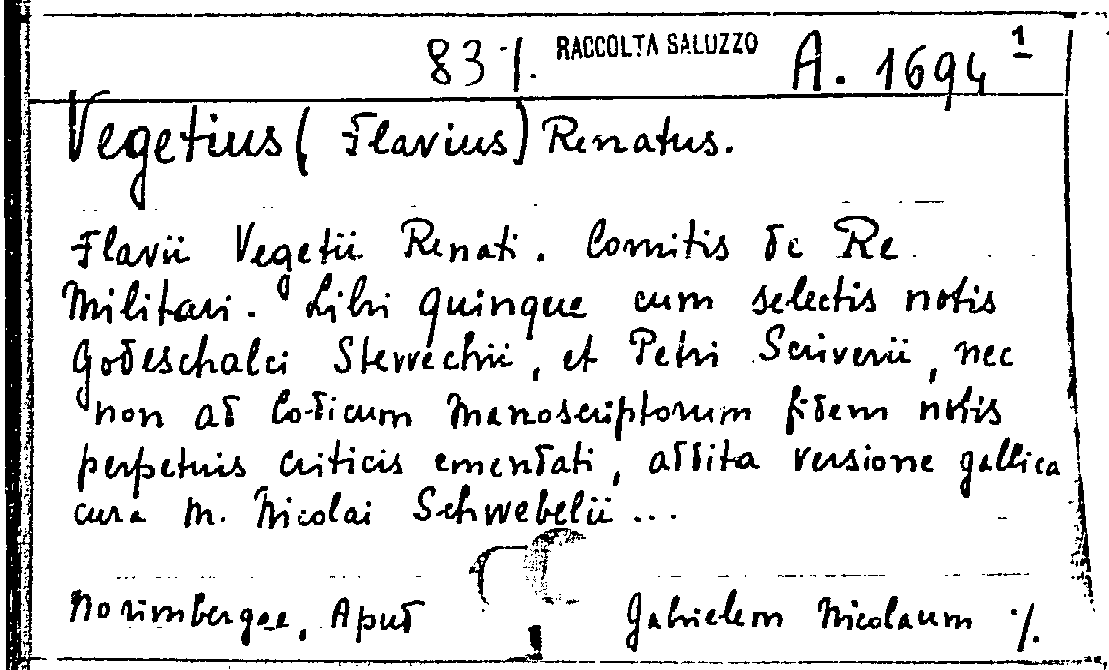 83 ·/. RACCOLTA SALUZZO A. 1694 1
Vegetius (Flavius) Renatus.
Flavii Vegetii Renati. Comitis de Re
Militari. Libri quinque cum selectis notis
Godeschalci Stewechii, et Petri Scriverii, nec
non ad Codicum Manoscriptorum fidem notis
perpetuis criticis emendati, addita versione gallica
cura M. Nicolai Schwebelii ...
Norimbergae, Apud Gabrielem Nicolaum ·/.